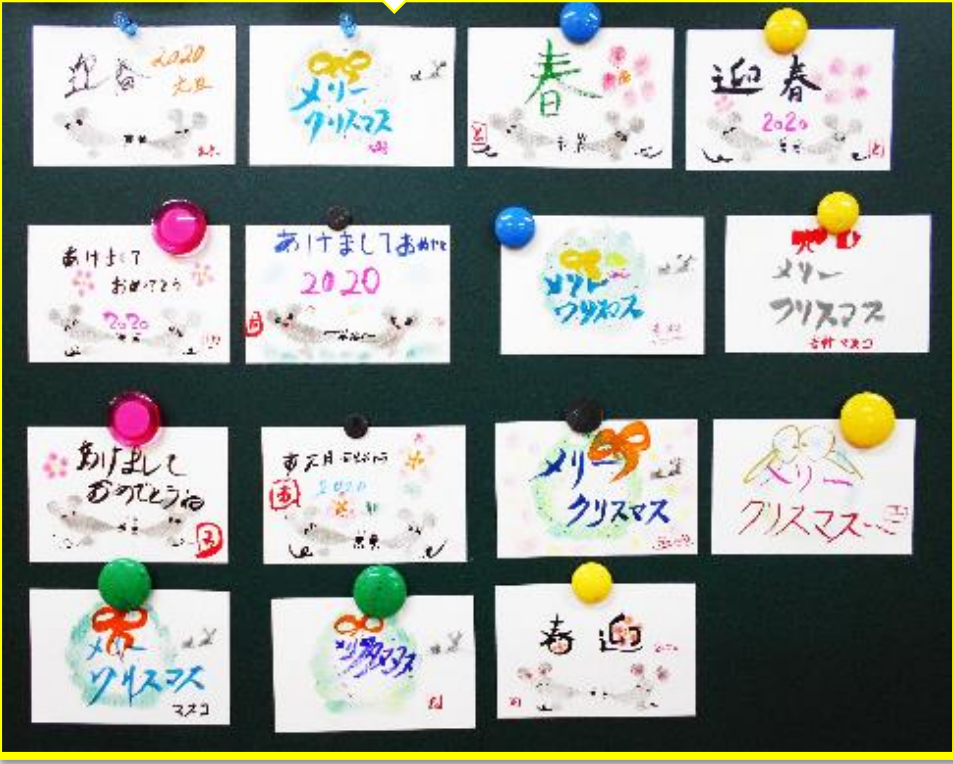 迎春
2020
元旦
メリー
クリスマス
春
迎春
2020
あけまして
おめでとう
2020
あけましておめでとう
2020
メリー
クリスマス
メリー
クリスマス
あけまして
おめでとう
2020
メリー
クリスマス
メリー
クリスマス
メリー
クリスマス
マスコ
メリ
クリスマス
春迎